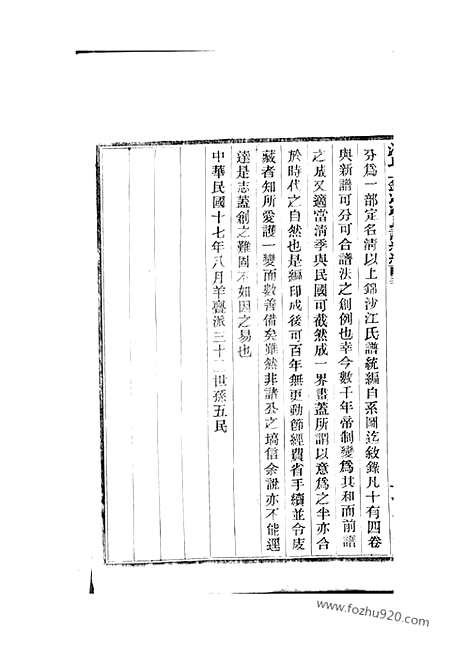 分爲一部定名清以上錦沙江氏譜統編自系圖迄敘錄凡十有四卷
與新譜可分可合譜法之創例也幸今數千年帝制變爲共和而前譜
之成又適當清季與民國可截然成一界畫蓋所謂以意爲之半亦合
於時代之自然也是編印成後可百年無更動節經費省手續並令庋
藏者知所愛護一變而數善備矣雖然非諸公之篤信余說亦不能遲
達是志蓋創之難固不如因之易也
中華民國十七年八月羊耋派三十二世孫五民
www.fozhu920.com